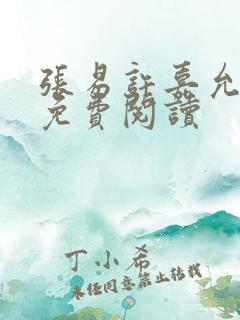 張易許嘉允
免費閱讀
丁小希
未經同意禁止轉載